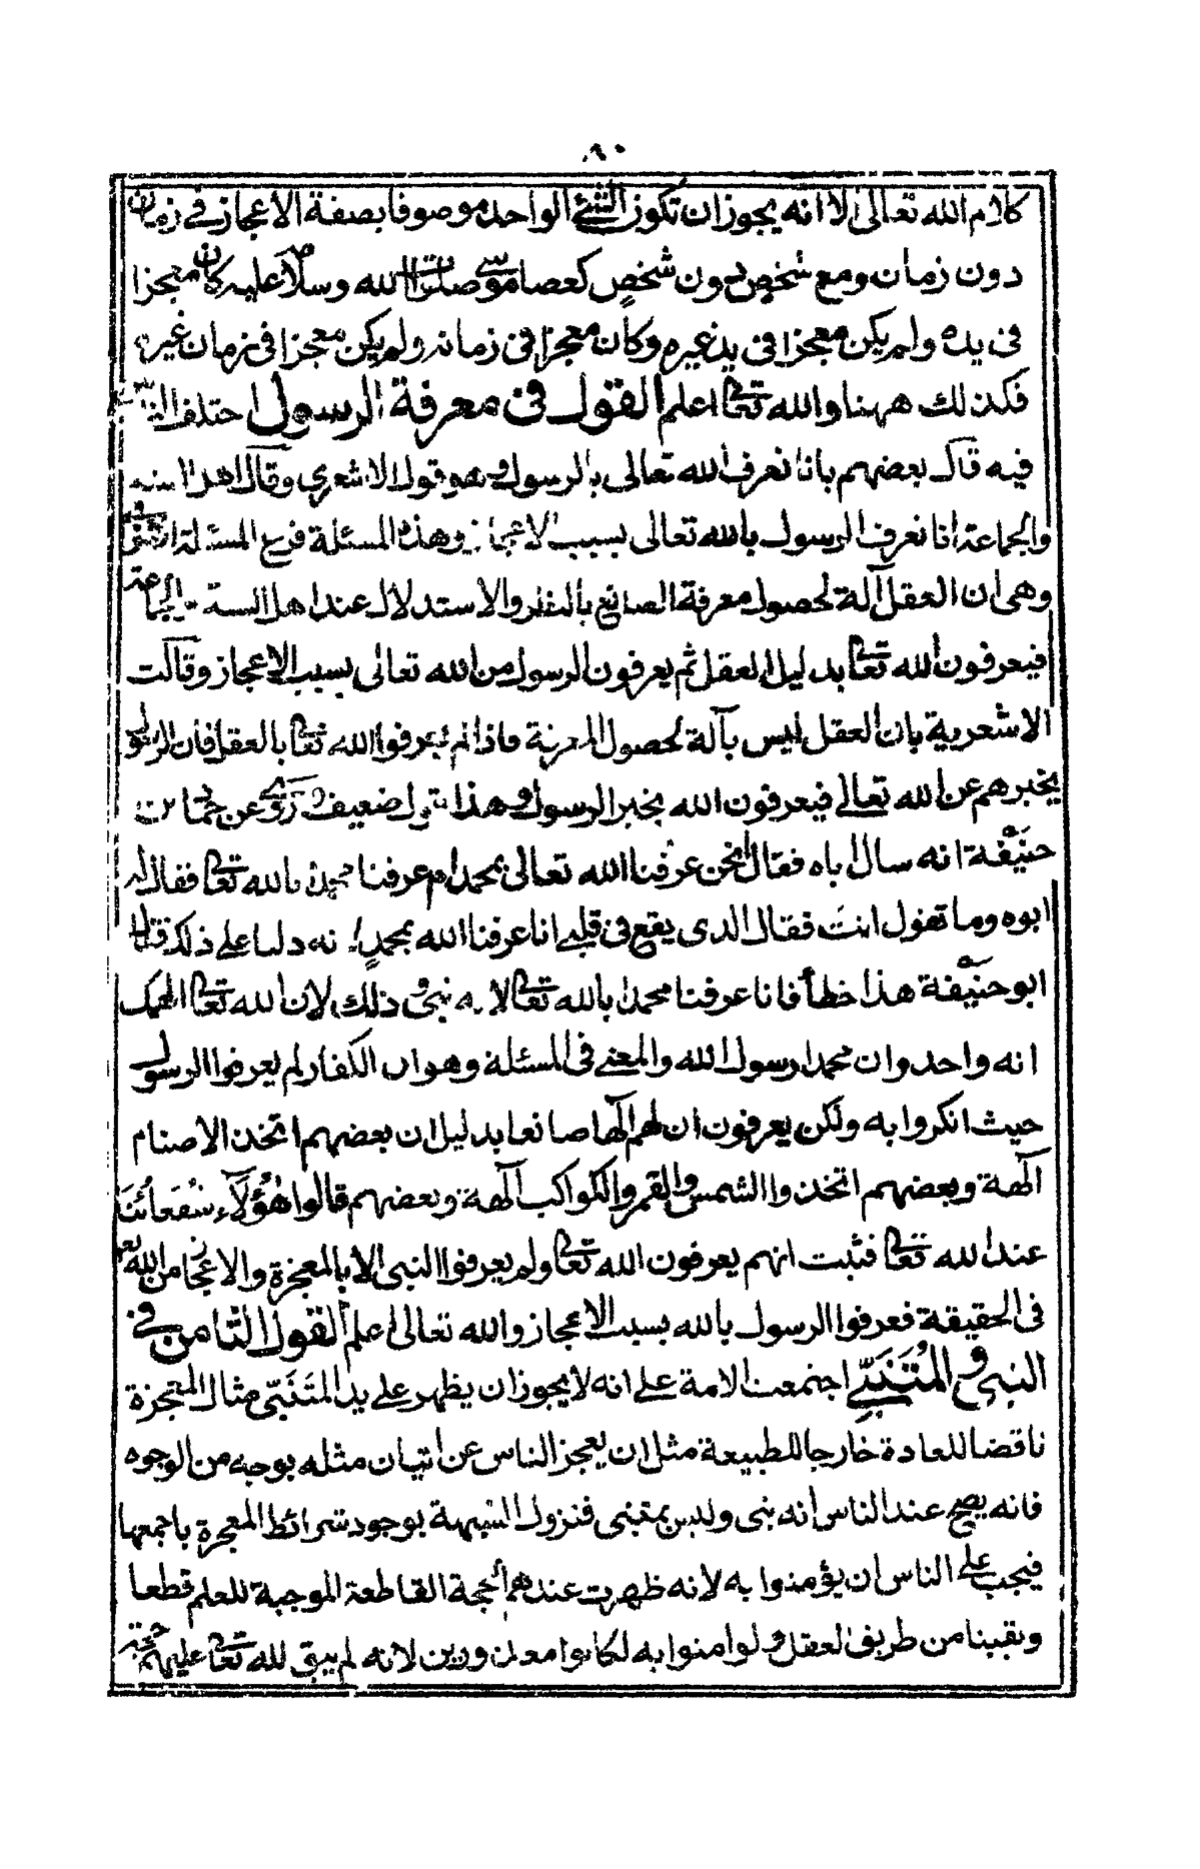 ٨٠
كلام الله تعالى الا انه يجوز ان تكون الشئ الواحد موصوفا بصفة الاعجاز في زمان
دون زمان ومع شخص دون شخص كعصا موسى صلوات الله وسلامه عليه كان معجزا
فى يده ولم يكن معجزا فى يد غيره وكان معجزا فى زمانه ولم يكن معجزا فى زمان غيره
فكذلك ههنا والله تعالى اعلم القول فى معرفة الرسول اختلف الناس
فيه قال بعضهم بانا نعرف الله تعالى بالرسول وهو قول الاشعري وقال اهل السنة
والجماعة انا نعرف الرسول بالله تعالى بسبب الاعجاز وهذه المسئلة فرع المسئلة
وهى ان العقل آلة لحصول معرفة الصانع بالنظر والاستدلال عند اهل السنة والجماعة
فيعرفون الله تعالى بدليل العقل ثم يعرفون الرسول من الله تعالى بسبب الاعجاز وقالت
الاشعرية بان العقل ليس بآلة لحصول المعرفة فاذا لم يعرفوا الله تعالى بالعقل فان الرسول
يخبرهم عن الله تعالى فيعرفون الله بخبر الرسول وهذا قول ضعيف وروى عن حماد بن
حنيفة انه سال اباه فقال نحن عرفنا الله تعالى بمحمد ام عرفنا محمدا بالله تعالى فقال له
ابوه وما تقول انت فقال الذى يقع فى قلبي انا عرفنا الله بمحمد لانه دلنا على ذلك فقال
ابو حنيفة هذا خطأ فانا عرفنا محمدا بالله تعالى لانه نبى وذلك لان الله تعالى
انه واحد وان محمدا رسول الله والمعنى فى المسئلة وهو ان الكفار لم يعرفوا الرسول
حيث انكروا به ولكن يعرفون ان لهم الها صانعا بدليل ان بعضهم اتخذ الاصنام
آلهة وبعضهم اتخذوا الشمس والقمر والكواكب آلهة وبعضهم قالوا هٰؤُلَآء شُفَعَائُنَا
عند الله تعالى فثبت انهم يعرفون الله تعالى ولم يعرفوا النبى الا بالمعجزة والاعجاز من الله تعالى
فى الحقيقة فعرفوا الرسول بالله بسبب الاعجاز والله تعالى اعلم القول الثامن في
النبى والمُتَنَبّي اجتمعت الامة على انه لا يجوز ان يظهر على يد المتَنَبّي مثال المعجزة
ناقضا للعادة خارجا للطبيعة مثل ان يعجز الناس عن اتيان مثله بوجه من الوجوه
فانه يصح عند الناس انه بنى وليس بمتبنى فنزول الشبهة بوجود شرائط المعجزة باجمعها
فيجب على الناس ان يؤمنوا به لانه ظهرت عندهم الحجة القاطعة الموجبة للعلم قطعا
ويقينا من طريق العقل ولو امنوا به لكانوا معذورين لانه لم يبق لله تعالى عليهم حجة